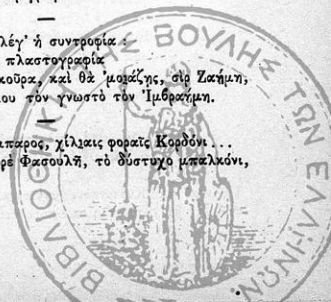 λέγ' ἡ συντροφία :
πλαστογραφία
κοῦρα, καὶ θὰ 'μοιάζῃς, σὶρ Ζαήμη,
του τὸν γνωστὸ τὸν Ἰμβραήμη.
παρος, χίλιαις φοραῖς Κορδόνι...
ρὲ Φασουλῆ, τὸ δύστυχο μπαλκόνι,
ΒΙΒΛΙΟΘΗΚΗ ΤΗΣ ΒΟΥΛΗΣ ΤΩΝ ΕΛΛΗΝΩΝ